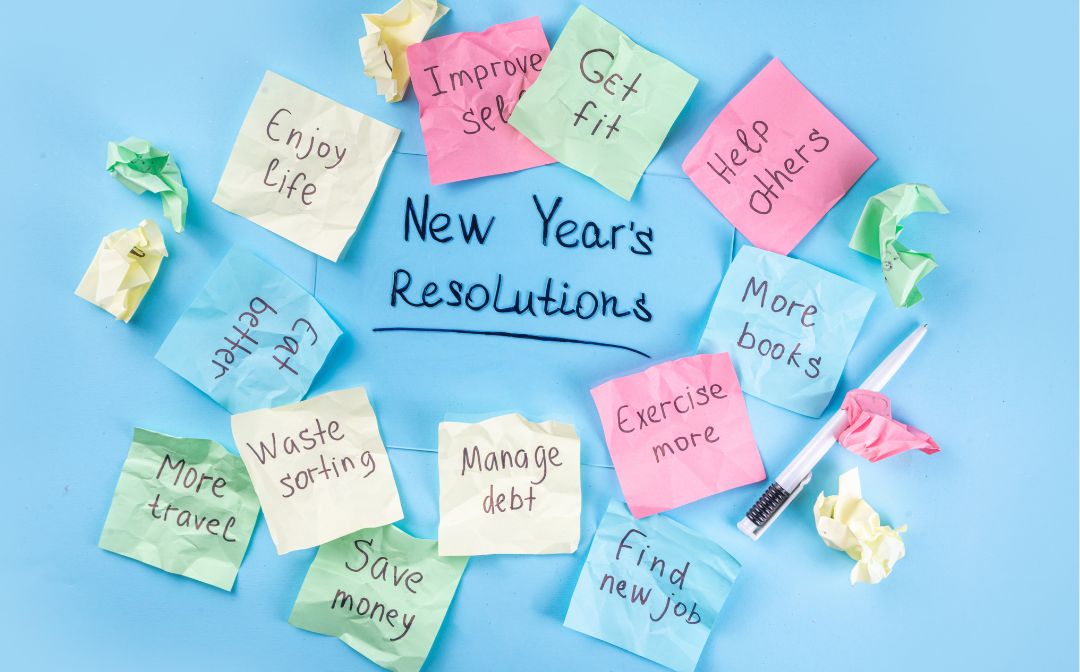 Improve
self
Get
fit
Enjoy
life
Help
others
New Year's
Resolutions
Eat
better
More
books
Exercise
more
Waste
sorting
Manage
debt
More
travel
Save
money
Find
new job